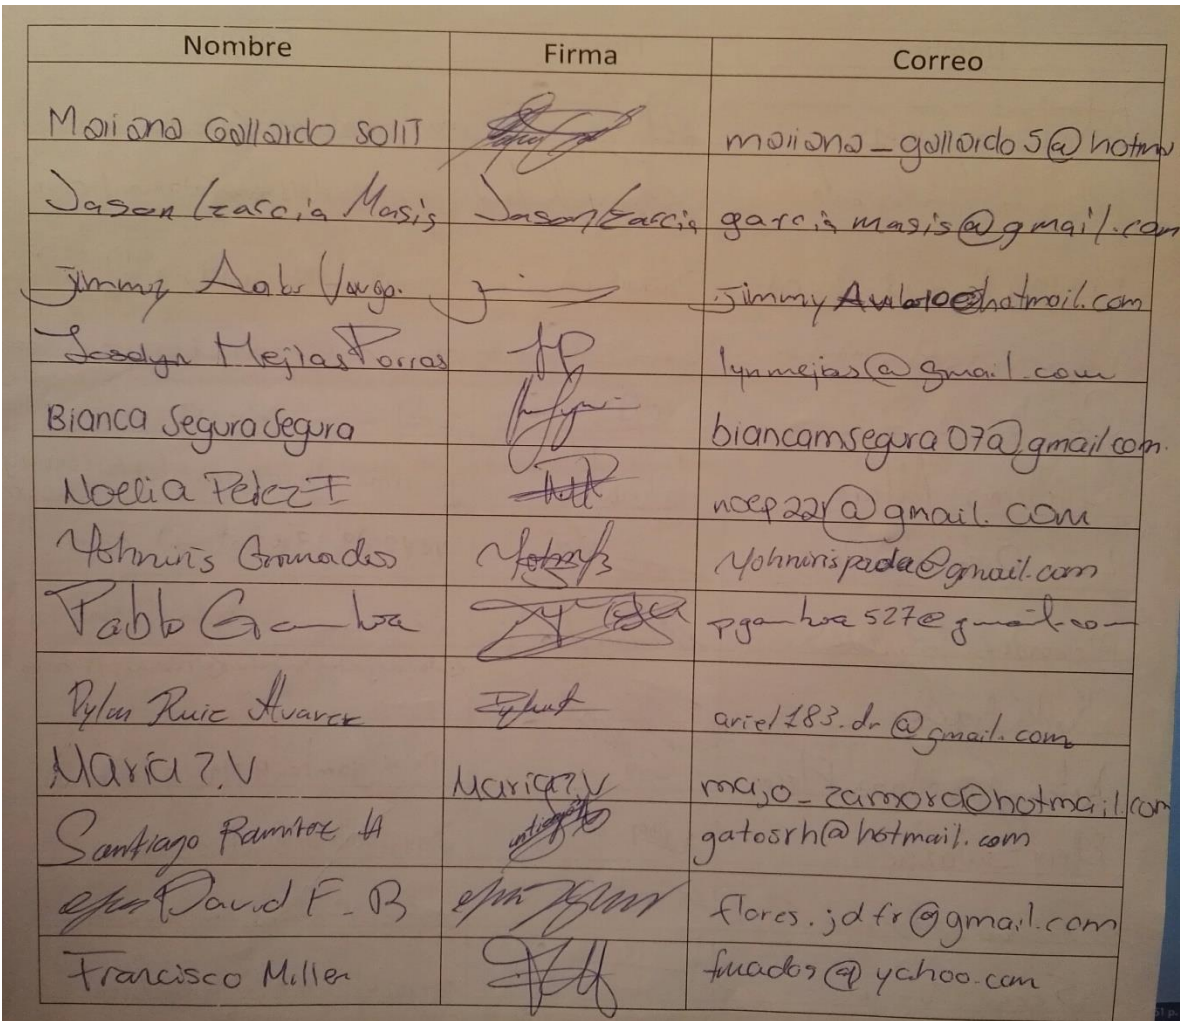 Nombre Firma Correo
Mariana Gallardo Solit mariana_gallardo5@hotm
Jason Garcia Masis Jason Garcia garciamasis@gmail.com
Jimmy Jimmy @hotmail.com
Joselyn Mejias Porras JP lynmejias@gmail.com
Bianca Segura Segura biancamsegura07@gmail.com.
Noelia Perez noep22r@gmail.com
Yohniris Granados Yohnirispada@gmail.com
Pablo Gamboa pgamboa527@gmail.com
Dylan Ruiz Alvarez ariel183.dr@gmail.com
Maria Z.V Maria Z.V majo_zamora@hotmail.com
Santiago Ramirez gatosrh@hotmail.com
David F.B flores.jdfr@gmail.com
Francisco Miller @yahoo.com